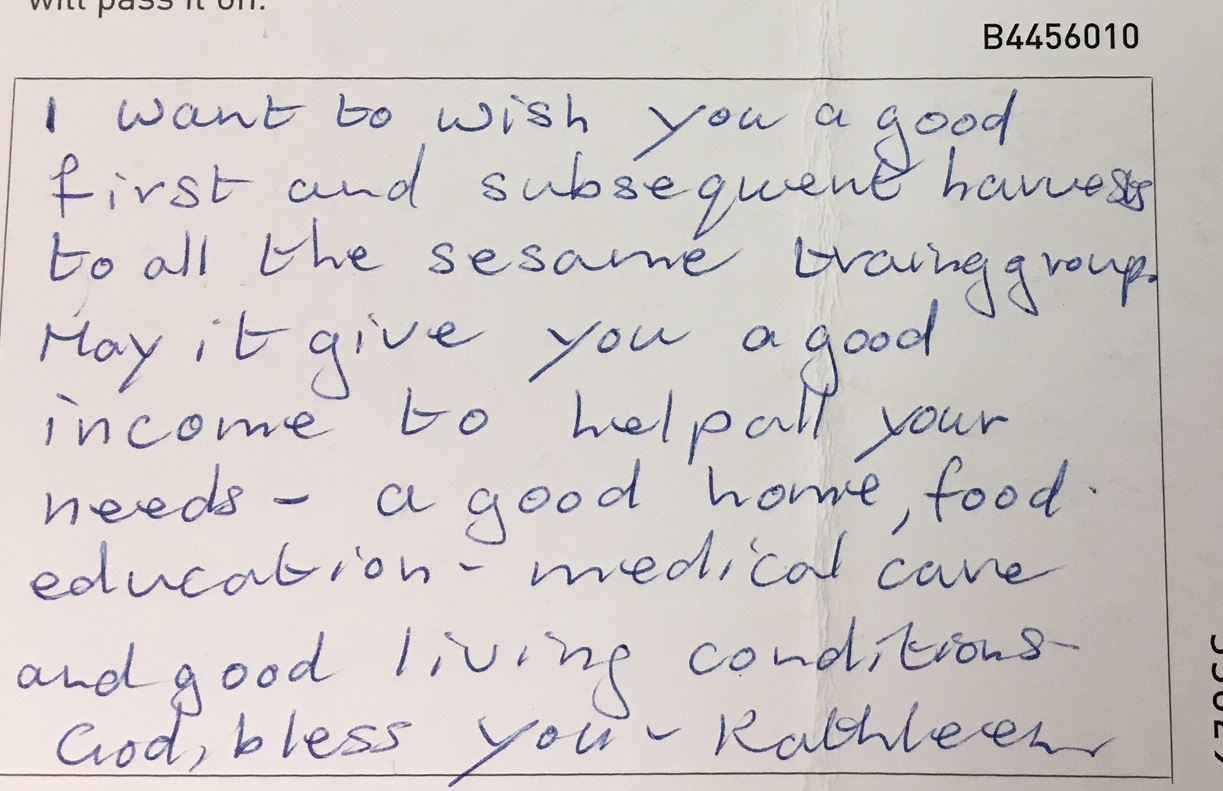 will pass it on.
B4456010
I want to wish you a good
first and subsequent harvests
to all the sesame traing group.
May it give you a good
income to help all your
needs - a good home, food.
education - medical care
and good living conditions-
God, bless you - Kathleen